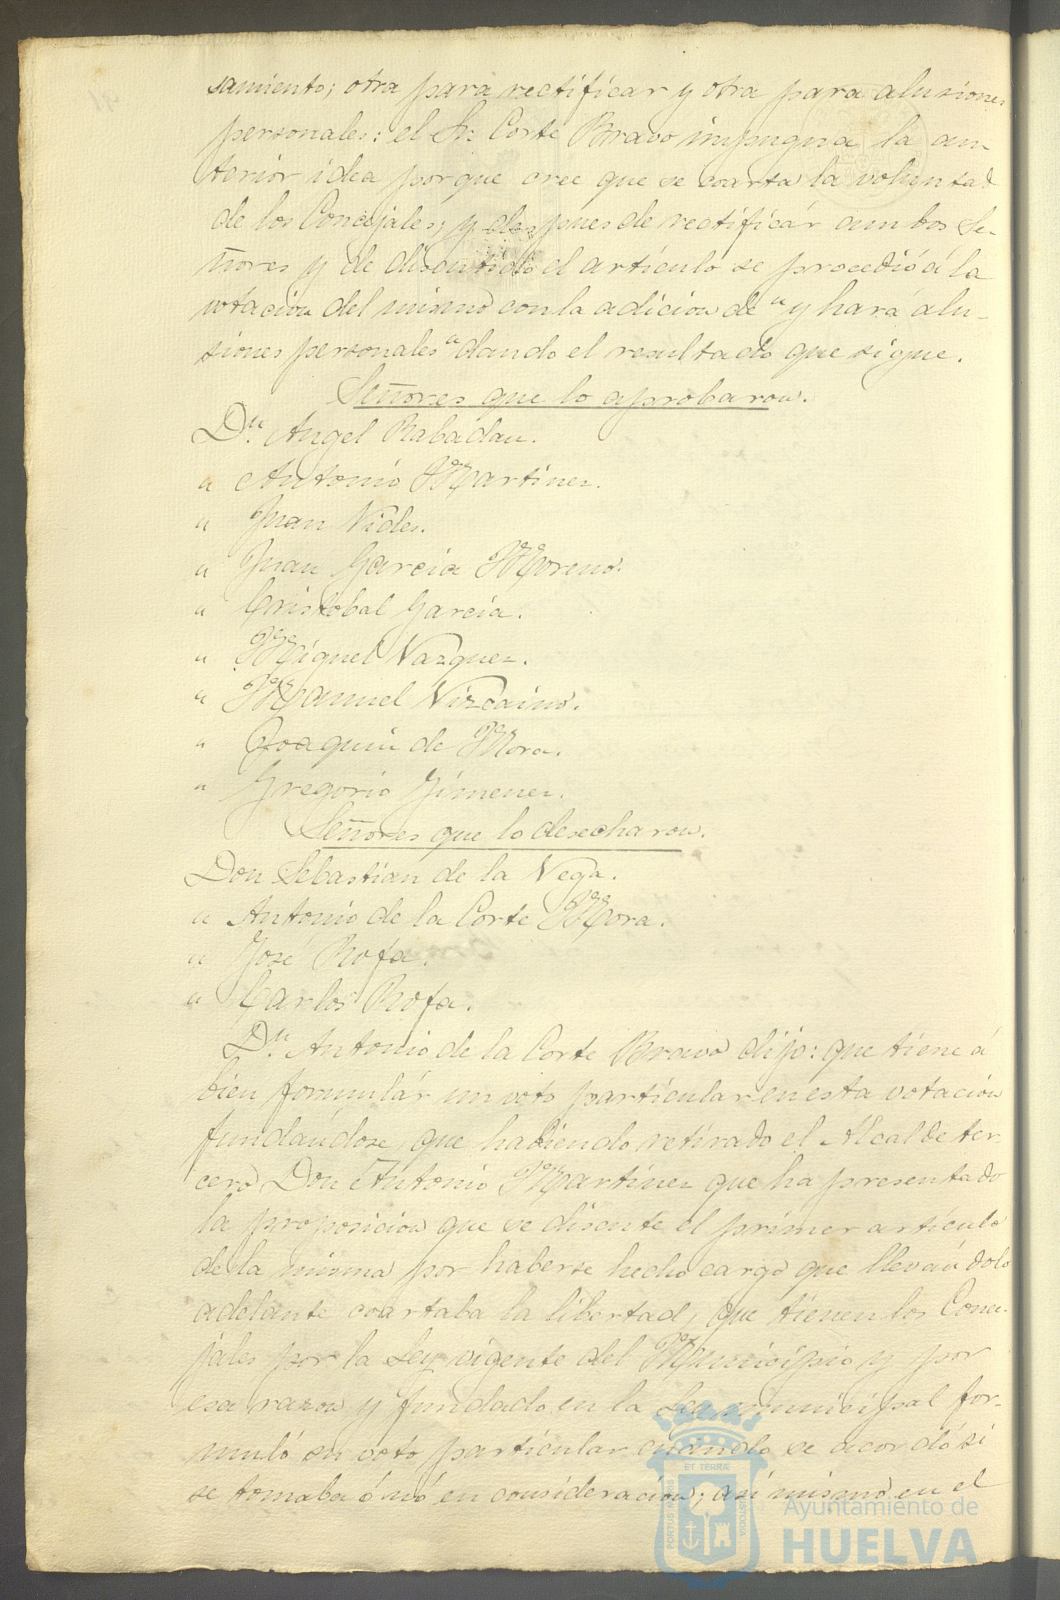 samiento; otra para rectificar y otra para alusiones
personales: el Sr. Corte Bravo impugna la an-
terior idea porque cree que se coarta la voluntad
de los Concejales; y despues de rectificár ambos Se-
ñores y de discutido el artículo se procedió á la
votacion del mismo con la adicion de " y hará alu-
siones personales " dando el resultado que sigue.
Señores que lo aprobaron.
Dn. Angel Rabadan.
" Antonio Martinez.
" Juan Vides.
" Juan García Moreno.
" Cristobal García.
" Miguel Vazquez.
" Manuel Vizcaino.
" Joaquin de Mora.
" Gregorio Jimenez.
Señores que lo desecharon.
Don Sebastian de la Vega.
" Antonio de la Corte Mora.
" José Rofa.
" Carlos Rofa.
Dn. Antonio de la Corte Bravo dijo: que tiene á
bien formulár un voto particular en esta votación
fundándose, que habiendo retirado el Alcalde ter-
cero Don Antonio Martinez que ha presentado
la proposicion que se discute el primer artículo
de la misma por haberse hecho cargo que llevándolo
adelante coartaba la libertad, que tienen los Conce-
jales por la Ley vigente del Municipio y por
esa razon y fundado en la Ley municipal for-
muló su voto particular cuando se acordó si
se tomaba ó nó en consideracion; asi mismo en el
PORTUS MARIS ET TERRÆ CUSTODIA
Ayuntamiento de
HUELVA